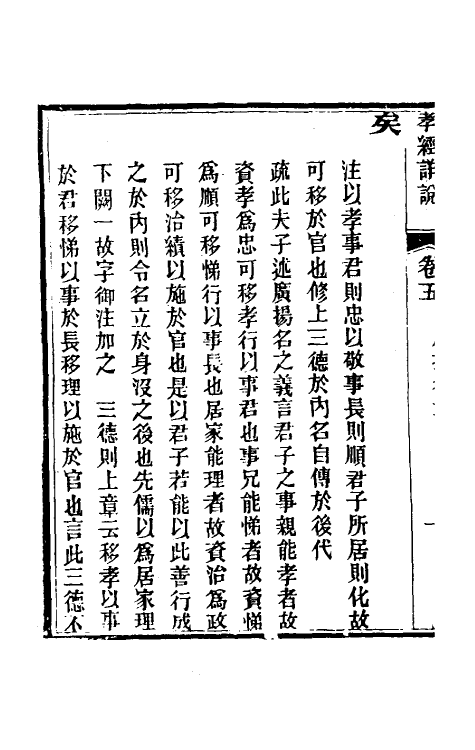 孝經詳說
卷五
一
矣
注以孝事君則忠以敬事長則順君子所居則化故
可移於官也修上三德於內名自傳於後代
疏此夫子述廣揚名之義言君子之事親能孝者故
資孝爲忠可移孝行以事君也事兄能悌者故資悌
爲順可移悌行以事長也居家能理者故資治爲政
可移治績以施於官也是以君子若能以此善行成
之於內則令名立於身沒之後也先儒以爲居家理
下闕一故字御注加之 三德則上章云移孝以事
於君移悌以事於長移理以施於官也言此三德不